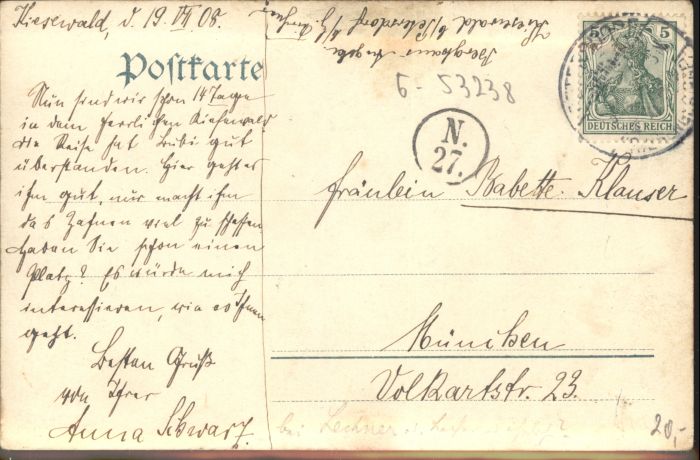 Kiesewald, d. 19. VII 08.
Postkarte
Nun sind wir schon 14 Tage
in dem herrlichen Kiesewald
die Reise hat Bubi gut
überstanden. Hier geht es
ihm gut, nur macht ihm
das Zahnen viel zu schaffen
Haben Sie schon einen
Platz? Es würde mich
interessieren, wie es Ihnen
geht.
Besten Gruß
von Ihrer
Anna Schwarz
Kiesewald b/Petersdorf
6-53238
N.
27.
5
DEUTSCHES REICH
Fräulein Babette Klauser
München
Volkartstr. 23.
bei Lechner
20,-